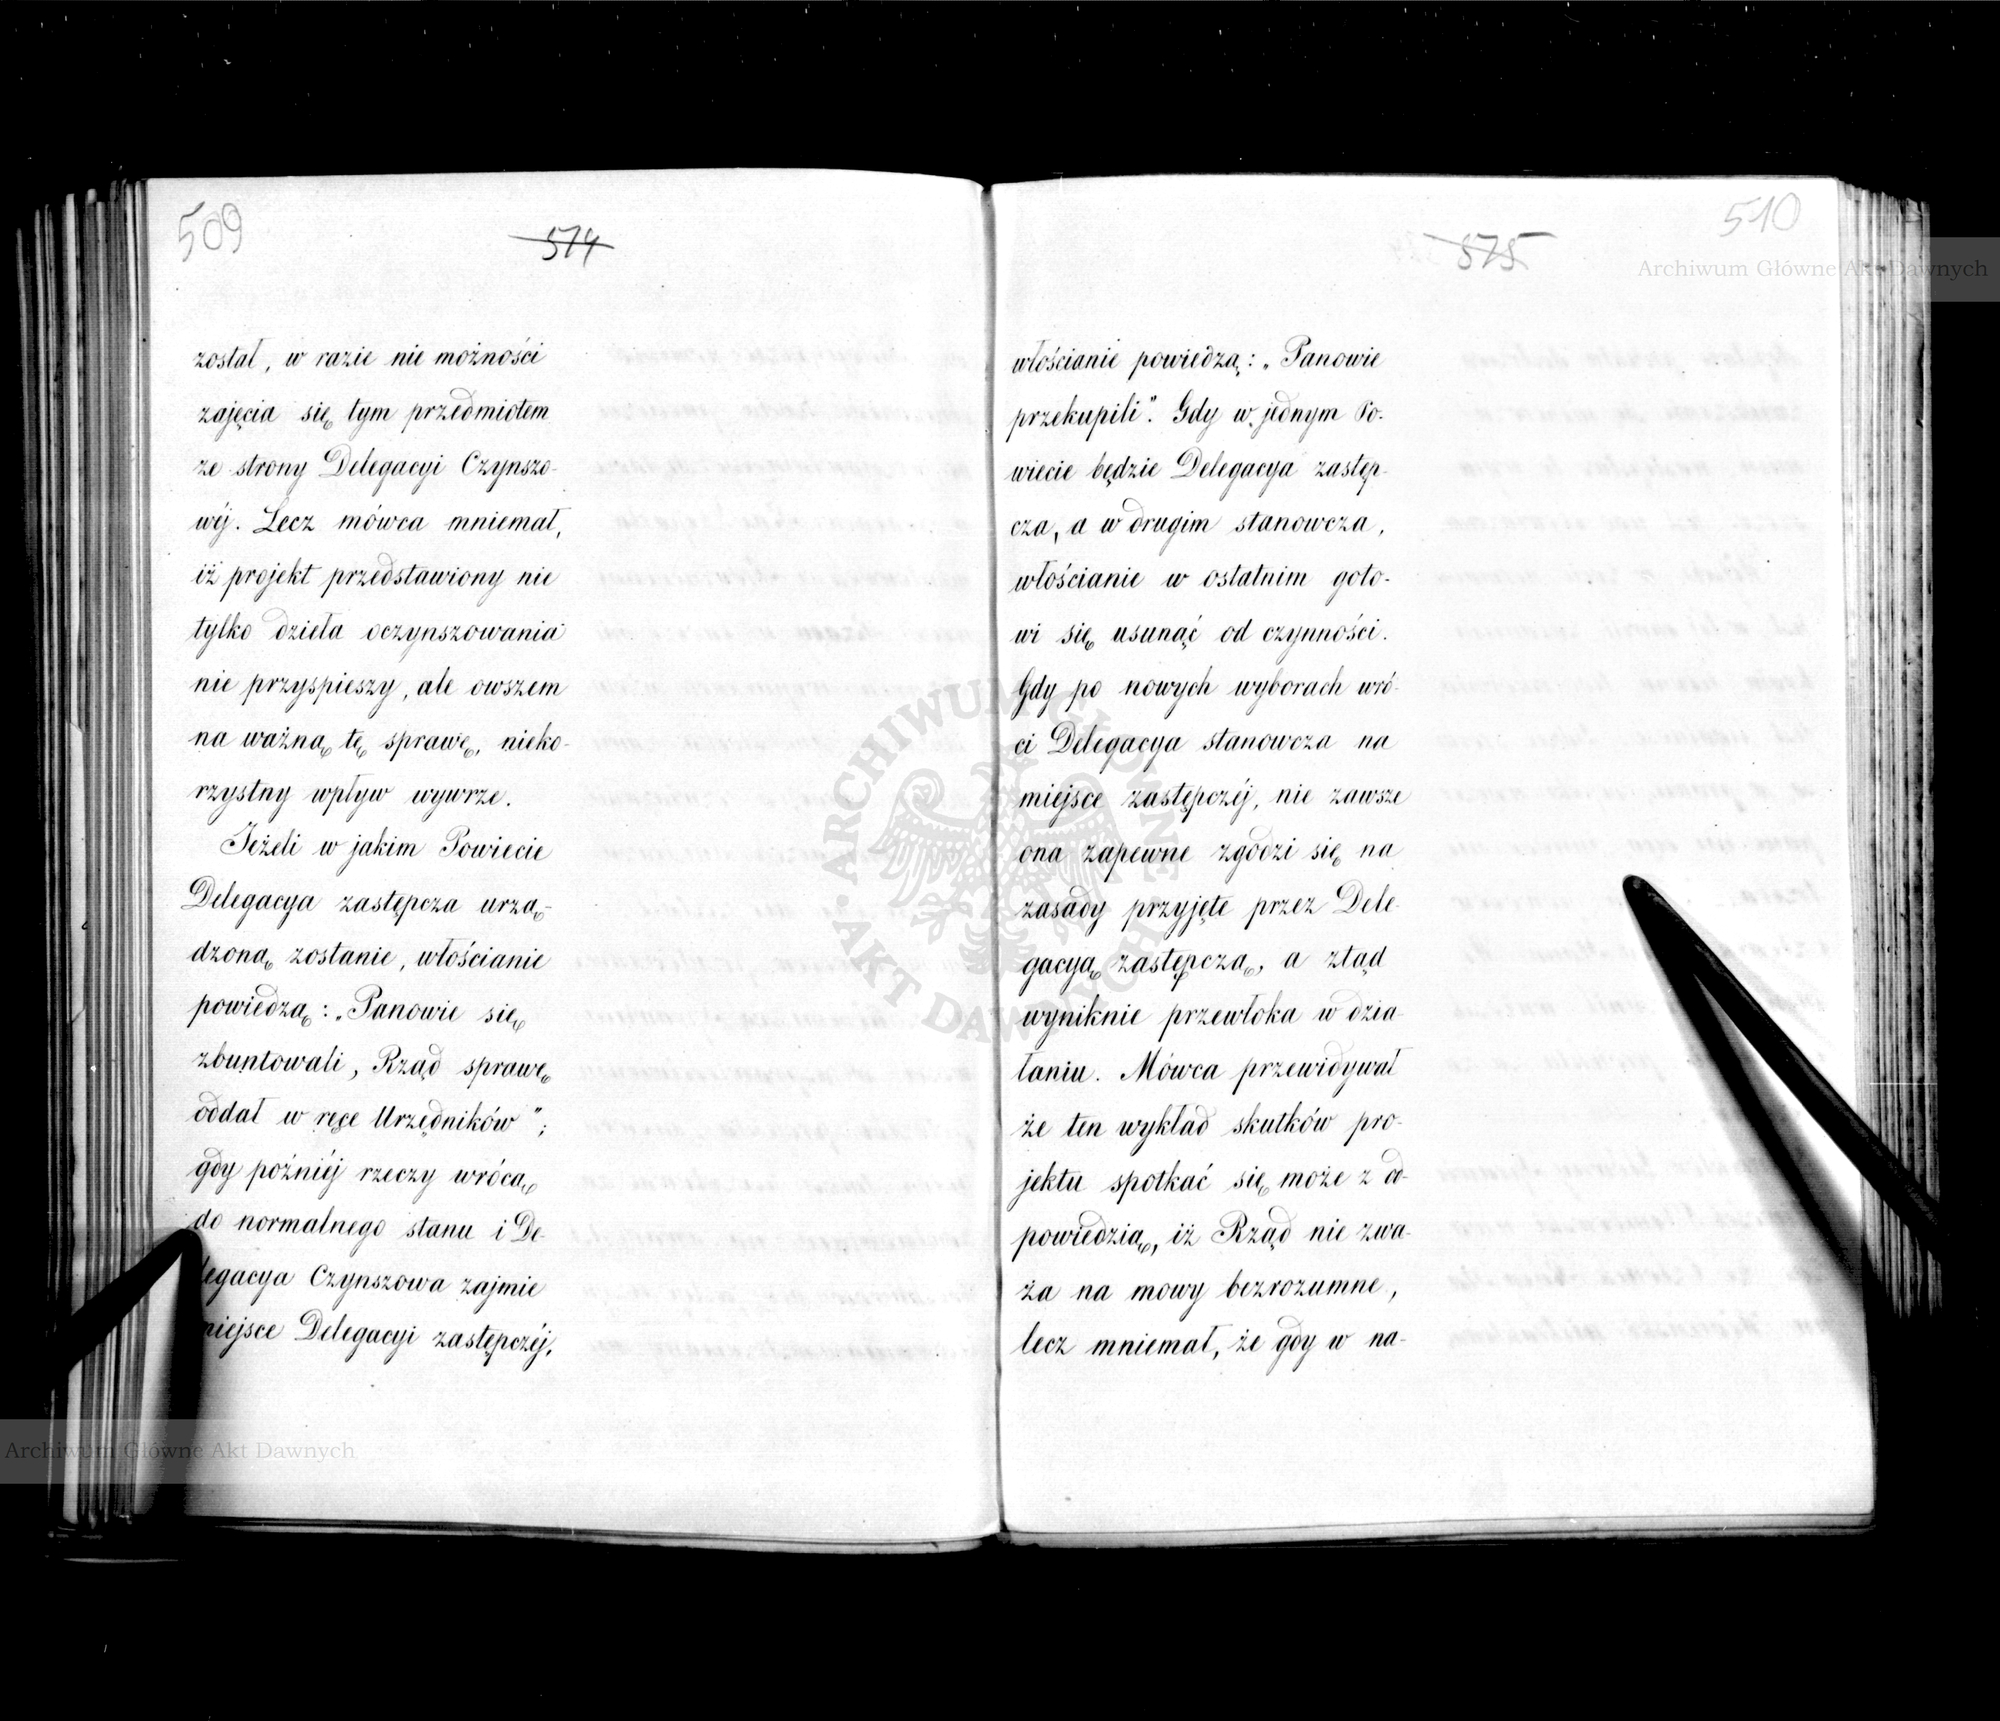 509
574
został, w razie nie możności
zajęcia się tym przedmiotem
ze strony Delegacyi Czynszo-
wéj. Lecz mówca mniemał,
iż projekt przedstawiony nie
tylko dzieła oczynszowania
nie przyspieszy, ale owszem
na ważną tę sprawę, nieko-
rzystny wpływ wywrze.
Jeżeli w jakim Powiecie
Delegacya zastępcza urzą-
dzoną zostanie, włościanie
powiedzą: „Panowie się
zbuntowali, Rząd sprawę
oddał w ręce Urzędników”;
gdy poźniéj rzeczy wrócą
do normalnego stanu i De-
legacya Czynszowa zajmie
miejsce Delegacyi zastępczéj,
510
575
włościanie powiedzą: „Panowie
przekupili”. Gdy w jednym Po-
wiecie będzie Delegacya zastęp-
cza, a w drugim stanowcza,
włościanie w ostatnim goto-
wi się usunąć od czynności.
Gdy po nowych wyborach wró-
ci Delegacya stanowcza na
miejsce zastępczéj, nie zawsze
ona zapewne zgodzi się na
zasady przyjęte przez Dele-
gacyą zastępczą, a ztąd
wyniknie przewłoka w dzia-
łaniu. Mówca przewidywał
że ten wykład skutków pro-
jektu spotkać się może z od-
powiedzią, iż Rząd nie zwa-
ża na mowy bezrozumne,
lecz mniemał, że gdy w na-
Archiwum Główne Akt Dawnych
ARCHIWUM GŁÓWNE AKT DAWNYCH
Archiwum Główne Akt Dawnych